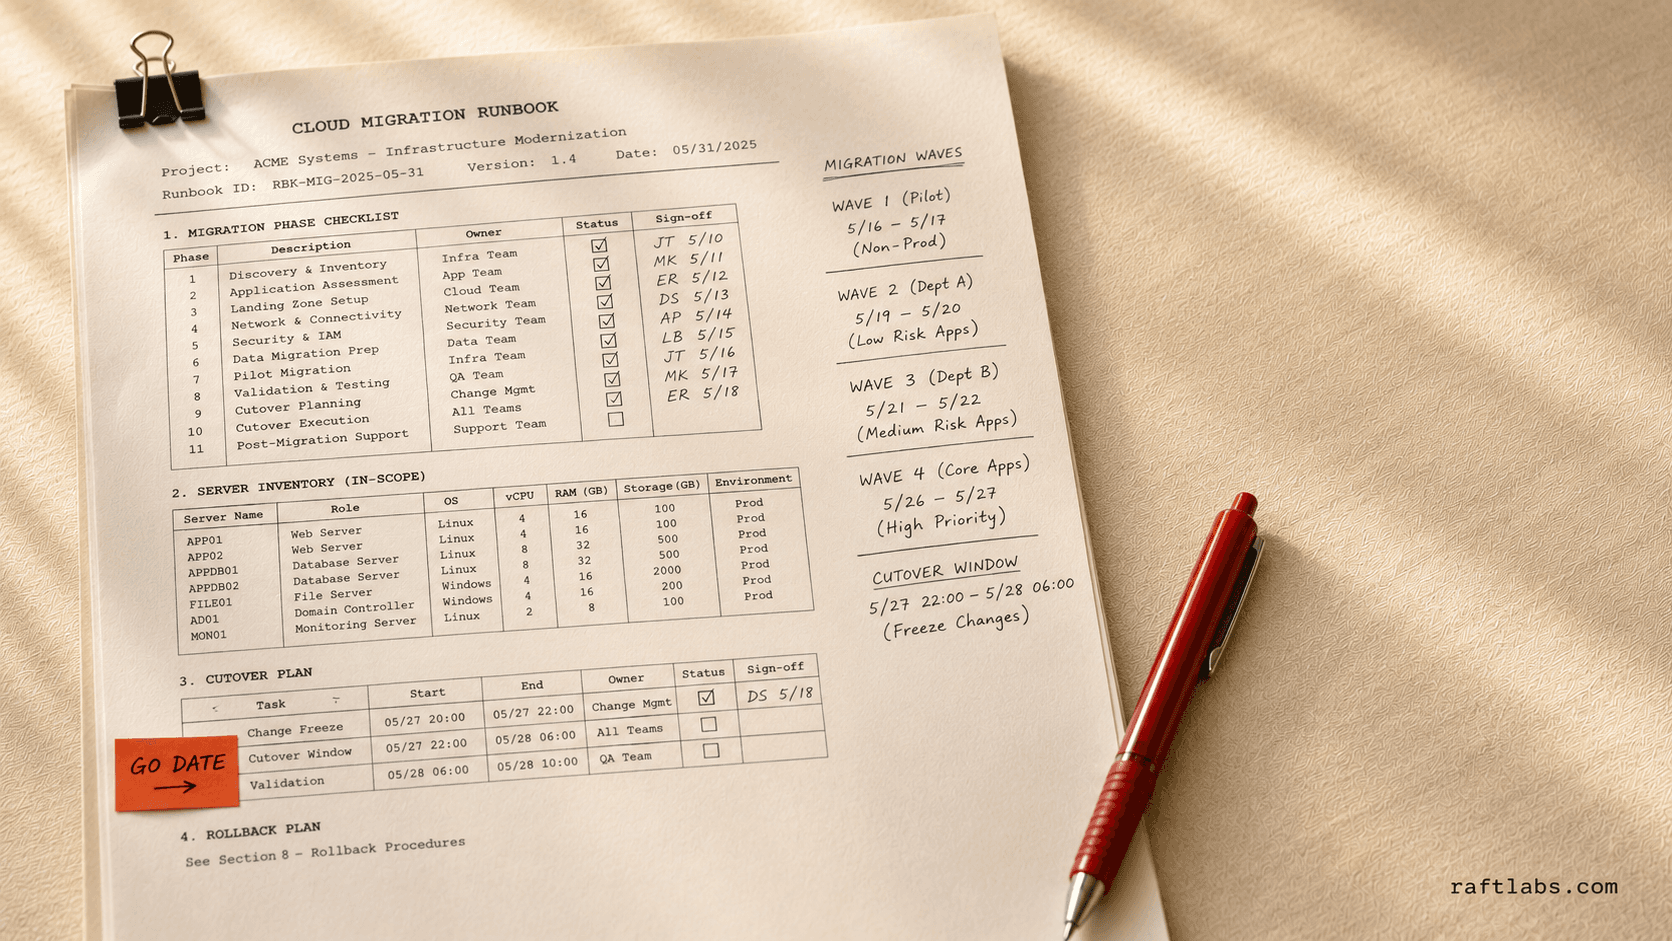 CLOUD MIGRATION RUNBOOK
Project: ACME Systems – Infrastructure Modernization
Runbook ID: RBK-MIG-2025-05-31 Version: 1.4 Date: 05/31/2025
1. MIGRATION PHASE CHECKLIST
Phase Description Owner Status Sign-off
1 Discovery & Inventory Infra Team ☑ JT 5/10
2 Application Assessment App Team ☑ MK 5/11
3 Landing Zone Setup Cloud Team ☑ ER 5/12
4 Network & Connectivity Network Team ☑ DS 5/13
5 Security & IAM Security Team ☑ AP 5/14
6 Data Migration Prep Data Team ☑ LB 5/15
7 Pilot Migration Infra Team ☑ JT 5/16
8 Validation & Testing QA Team ☑ MK 5/17
9 Cutover Planning Change Mgmt ☑ ER 5/18
10 Cutover Execution All Teams ☐
11 Post-Migration Support Support Team
2. SERVER INVENTORY (IN-SCOPE)
Server Name Role OS vCPU RAM (GB) Storage (GB) Environment
APP01 Web Server Linux 4 16 100 Prod
APP02 Web Server Linux 4 16 100 Prod
APPDB01 Database Server Linux 8 32 500 Prod
APPDB02 Database Server Linux 8 32 500 Prod
FILE01 File Server Windows 4 16 2000 Prod
AD01 Domain Controller Windows 4 16 200 Prod
MON01 Monitoring Server Linux 2 8 100 Prod
3. CUTOVER PLAN
Task Start End Owner Status Sign-off
Change Freeze 05/27 20:00 05/27 22:00 Change Mgmt ☑ DS 5/18
Cutover Window 05/27 22:00 05/28 06:00 All Teams ☐
Validation 05/28 06:00 05/28 10:00 QA Team ☐
GO DATE
→
4. ROLLBACK PLAN
See Section 8 – Rollback Procedures
MIGRATION WAVES
WAVE 1 (Pilot)
5/16 – 5/17
(Non-Prod)
WAVE 2 (Dept A)
5/19 – 5/20
(Low Risk Apps)
WAVE 3 (Dept B)
5/21 – 5/22
(Medium Risk Apps)
WAVE 4 (Core Apps)
5/26 – 5/27
(High Priority)
CUTOVER WINDOW
5/27 22:00 – 5/28 06:00
(Freeze Changes)
raftlabs.com